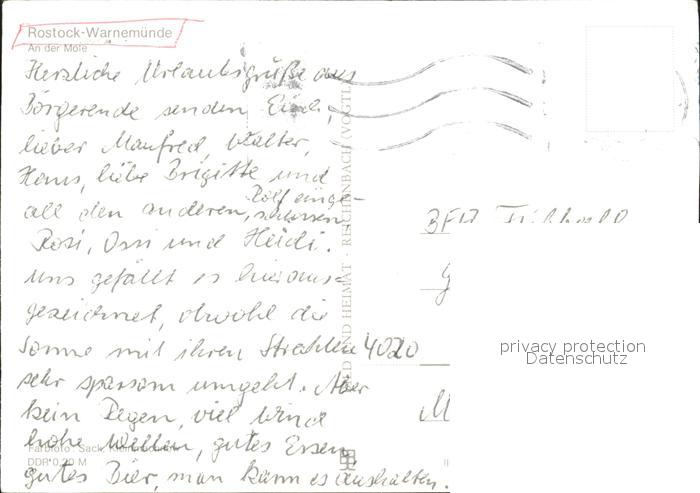 Rostock-Warnemünde
An der Mole
Herzliche Urlaubsgrüße aus
Börgerende senden Euch,
lieber Manfred, Walter,
Hans, liebe Brigitte und
all den anderen, Rolf einge-
schlossen
Rosi, Ossi und Heidi.
Uns gefällt es hier aus-
gezeichnet, obwohl die
Sonne mit ihren Strahlen
sehr sparsam umgeht. Aber
kein Regen, viel Wind
hohe Wellen, gutes Essen,
gutes Bier, man kann es aushalten.
Farbfoto: Sack,
DDR 0,20 M
BILD UND HEIMAT · REICHENBACH (VOGTL
4020
privacy protection
Datenschutz